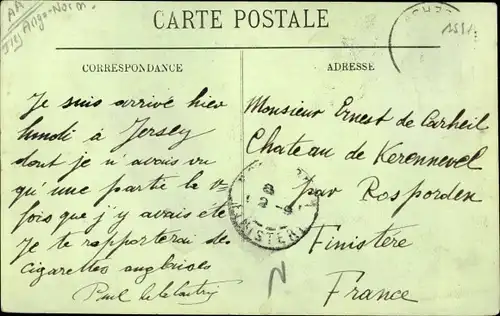 AA
Ang. Norm.
CARTE POSTALE
CORRESPONDANCE
ADRESSE
Je suis arrivé hier
lundi à Jersey
dont je n'avais vu
qu'une partie la
fois que j'y avais été
Je te rapporterai des
cigarettes anglaises
Paul
Monsieur Ernest de Carheil
Chateau de Kerennevel
par Rosporden
Finistère
France
FINISTERE
N